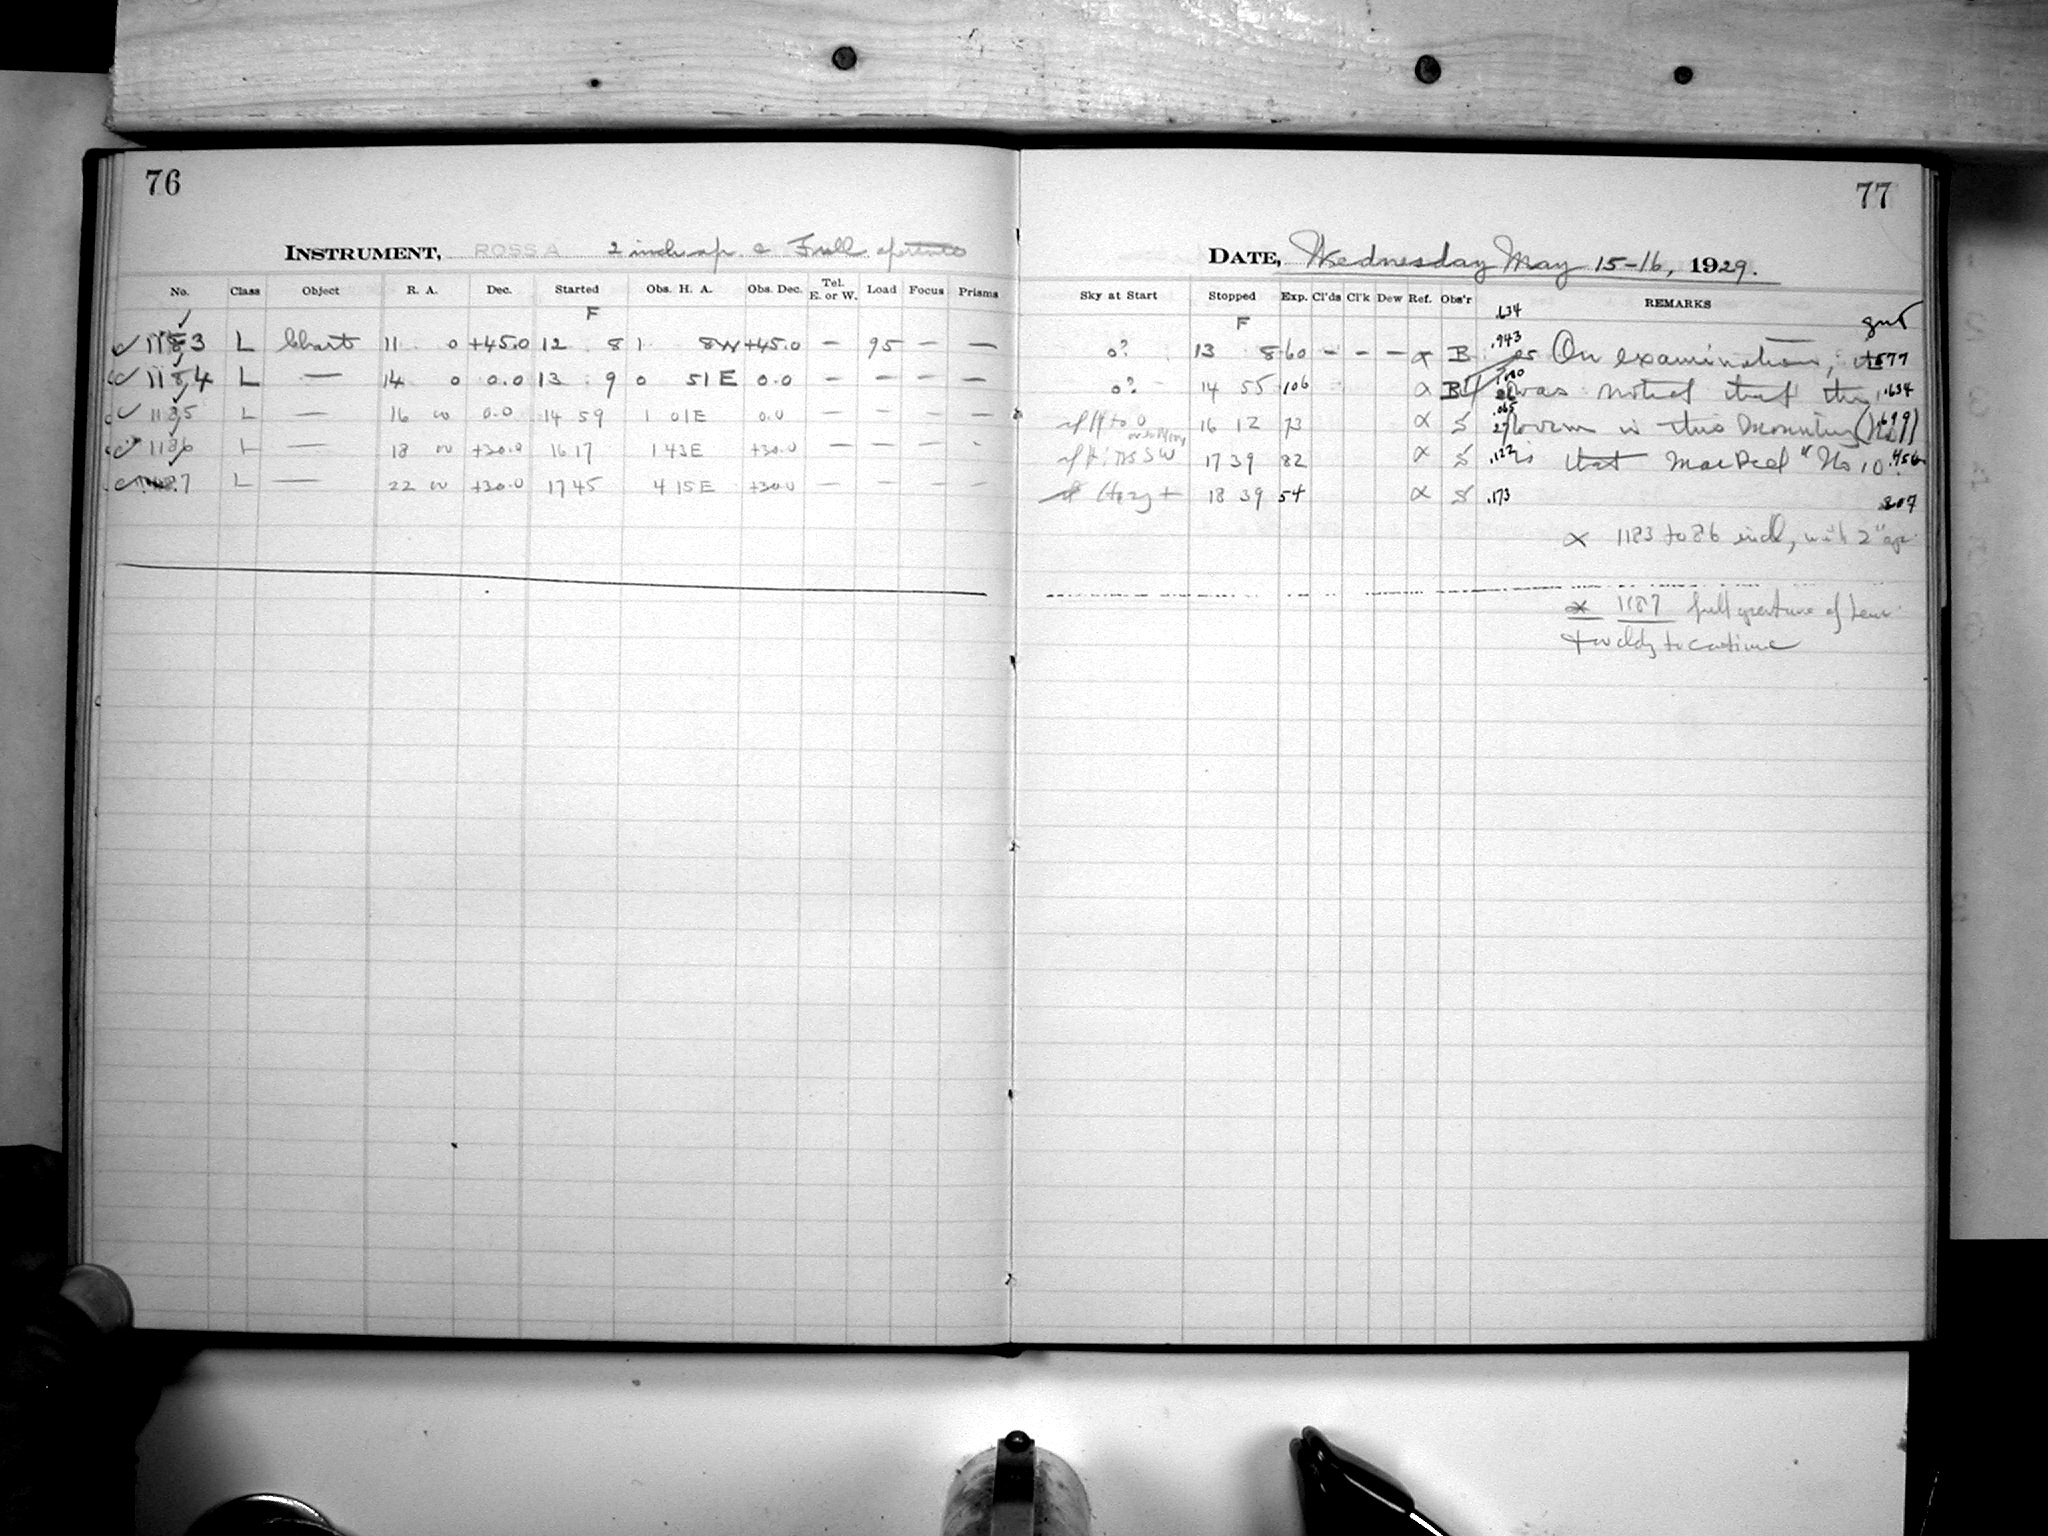 76
INSTRUMENT, ROSS A 2 inch ap. & Full aperture
No. Class Object R. A. Dec. Started Obs. H. A. Obs. Dec. Tel. E. or W. Load Focus Prisms
F
1183 L Chart 11 0 +45.0 12 8 1 8W +45.0 — 95 — —
1184 L — 14 0 0.0 13 9 0 51E 0.0 — — — —
1185 L — 16 00 0.0 14 59 1 01E 0.0 — — — —
1186 L — 18 00 +30.0 16 17 1 43E +30.0 — — — —
1187 L — 22 00 +30.0 17 45 4 15E +30.0 — — — —
77
DATE, Wednesday May 15-16, 1929.
Sky at Start Stopped Exp. Cl'ds Cl'k Dew Ref. Obs'r REMARKS
F .634
0? 13 8 60 - - - α B .943 On examination, it .577
0? 14 55 106 α B was noticed that the .634
16 12 73 α S .065 worm in this mounting .699
17 39 82 α S .122 is that marked "No 10" .456
Hazy + 18 39 54 α S .173 .207
α 1183 to 86 incl, with 2" ap.
α 1187 full aperture of lens
+ cloudy to continue